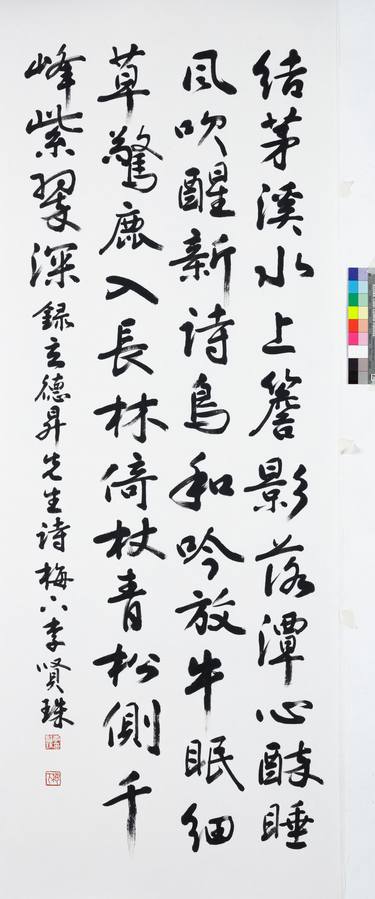 結茅溪水上簷影落潭心醉睡
風吹醒新詩鳥和吟放牛眠細
草驚鹿入長林倚杖青松側千
峰紫翠深 録玄德昇先生詩 梅下李賢珠